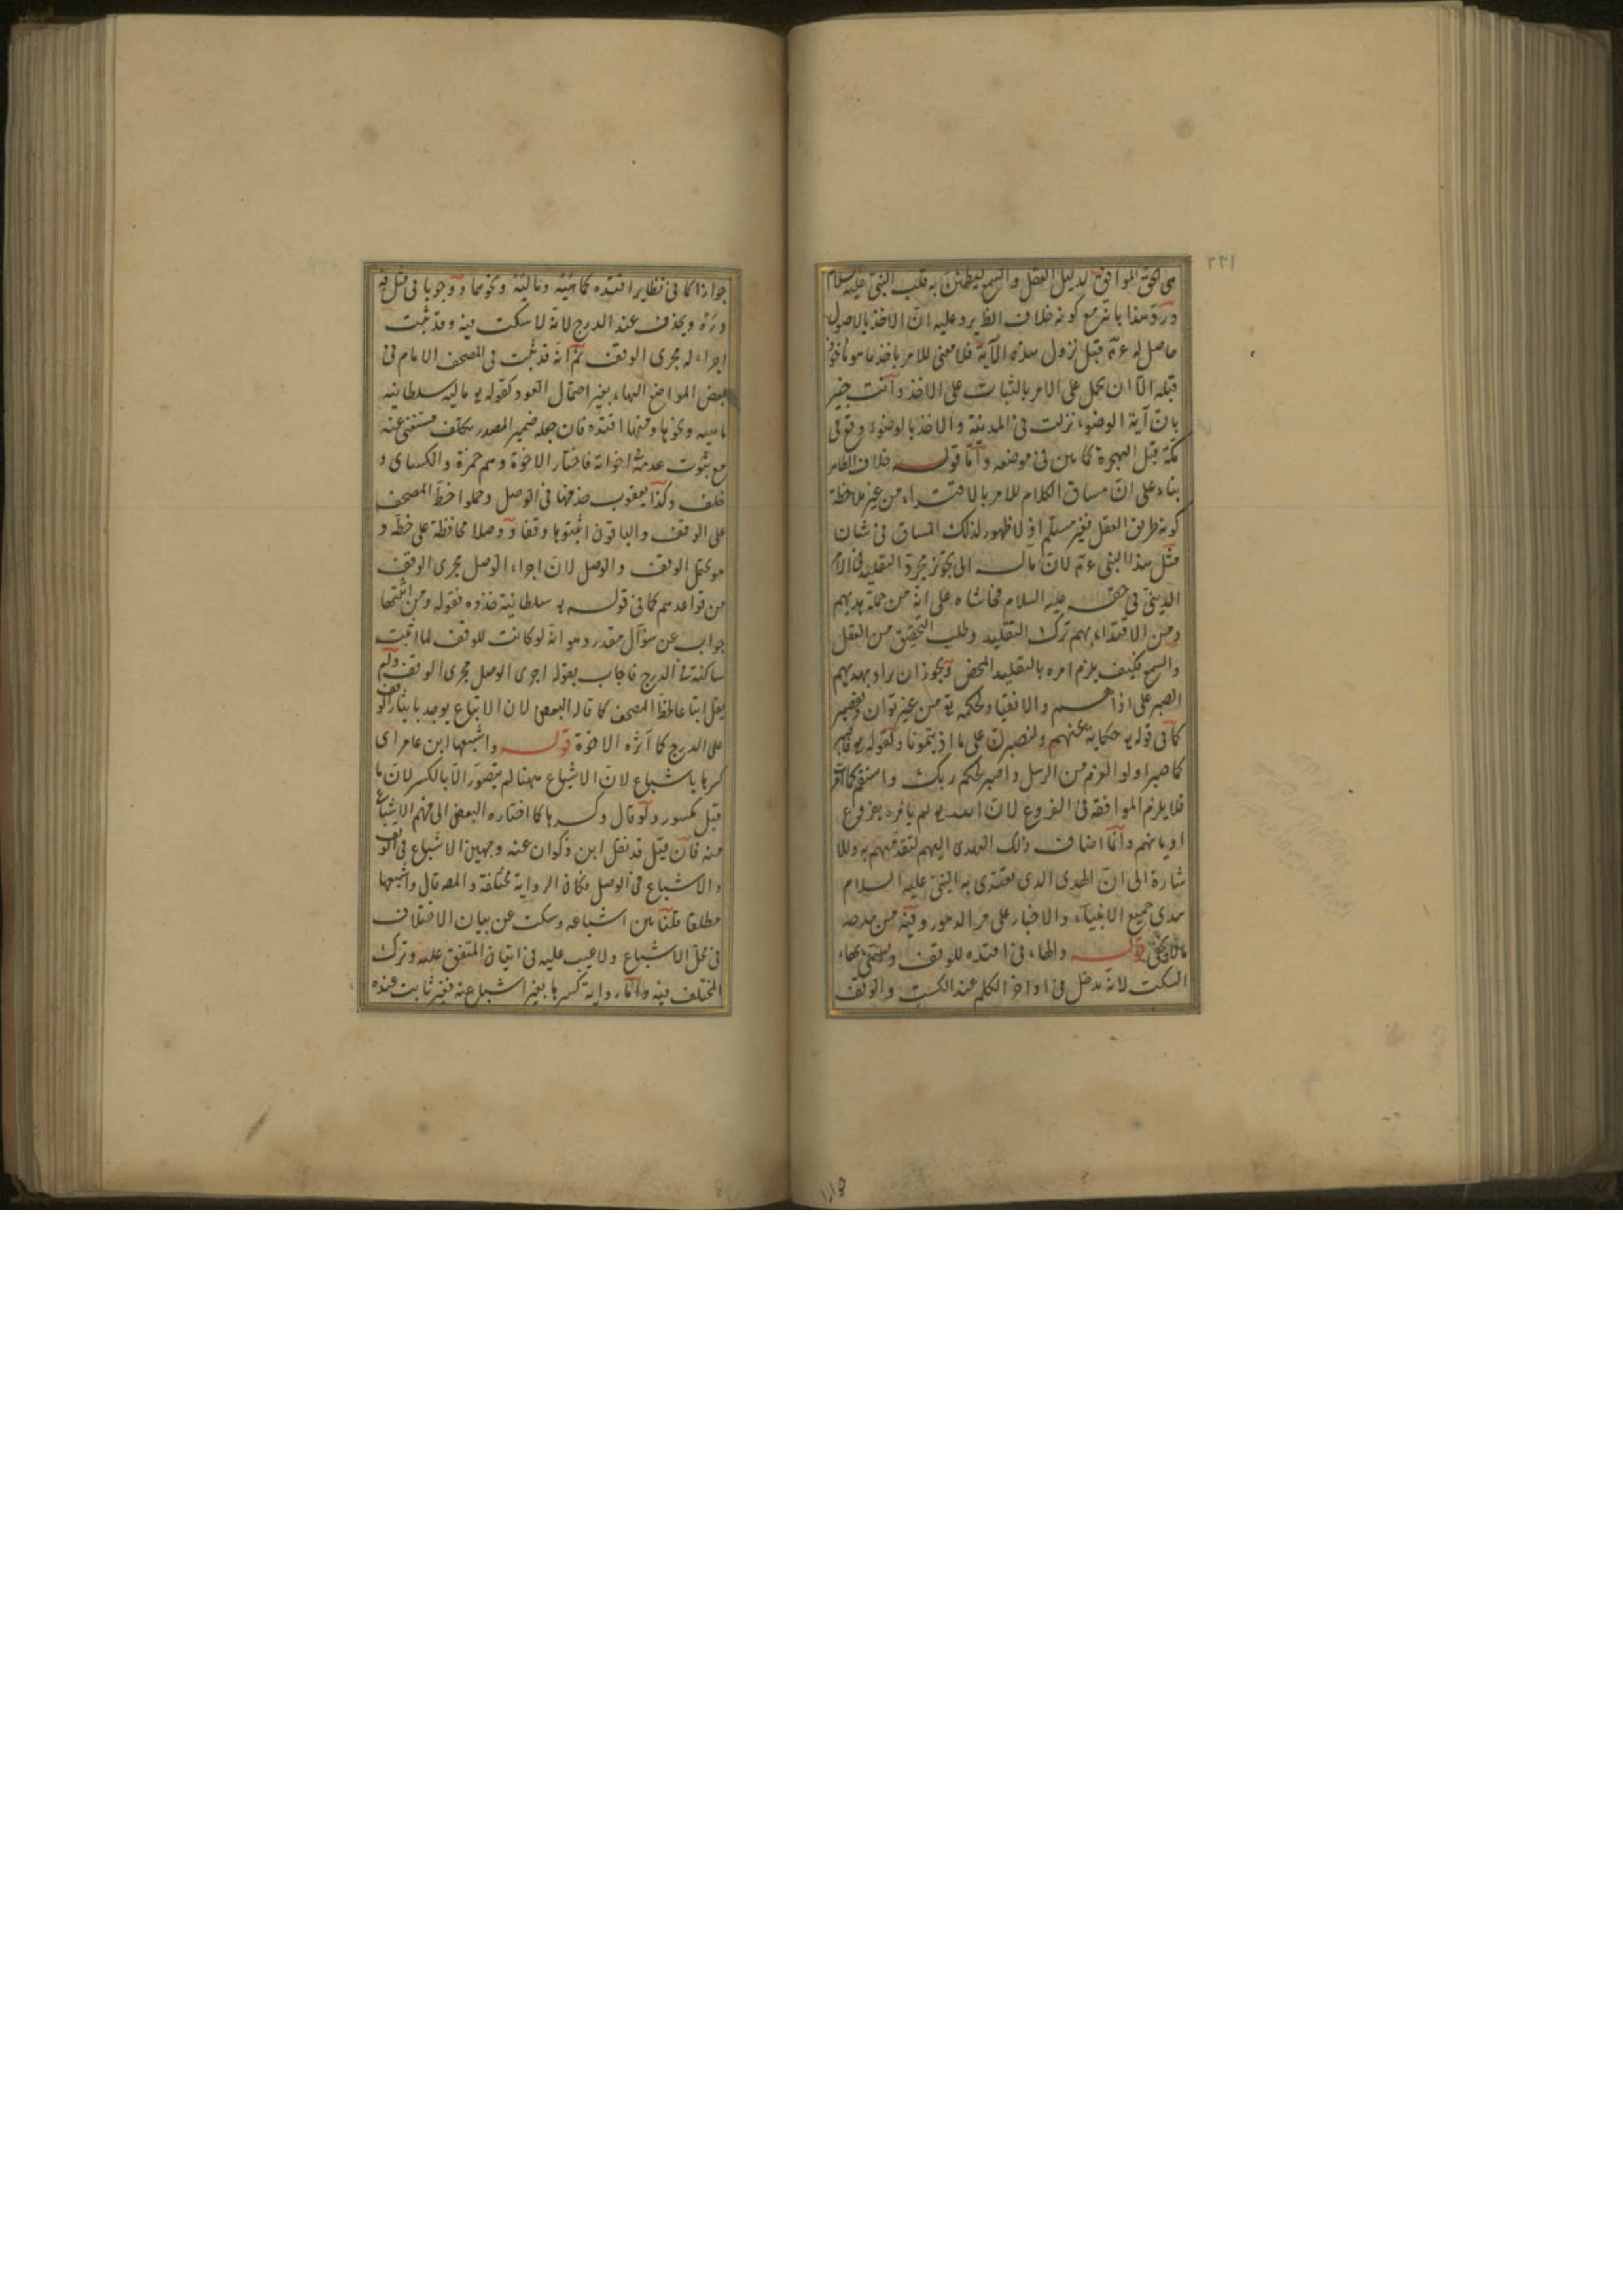 هى الحق الموافق لدليل العقل والسمع ليطمئن به قلب النبى عليه السلام
ورد هذا بانه مع كونه خلاف الظ يرد عليه ان الاخذ بالاصول
حاصل له عم قبل نزول هذه الآية فلا معنى للامر باخذ ما هو مأخوذ
قبله الا ان يحمل على الامر بالثبات على الاخذ وانت خبير
بان آية الوضوء نزلت فى المدينة والاخذ بالوضوء وقع فى
مكة قبل الهجرة كما بين فى موضعه واما قوله خلاف الظاهر
بناء على ان مساق الكلام للامر بالاقتداء من غير ملاحظة
كونه طريق العقل فغير مسلم اذ لا ظهور لذلك المساق فى شان
مثل هذا النبى عم لان مآله الى تجويز مجرد التقليد فى الامر
الدينى فى حقه عليه السلام فحاشاه على انه من جملة هديهم
ومن الاقتداء بهم ترك التقليد وطلب التحقيق من العقل
والسمع فكيف يلزم امره بالتقليد المحض ويجوز ان يراد بهديهم
الصبر على اذاهم والانقياد لحكمه تع من غير توان وتقصير
كما فى قوله تع حكاية عنهم ولنصبرن على ما اذيتمونا وكقوله تع فاصبر
كما صبر اولوا العزم من الرسل واصبر لحكم ربك واستقم كما امرت
فلا يلزم الموافقة فى الفروع لان الله تع لم يامره بفروع
اديانهم وانما اضاف ذلك الهدى اليهم لتقدمهم به وللا
شارة الى ان الهدى الذى يقتدى به النبى عليه السلام
هدى جميع الانبياء والاخيار على مر الدهور وفيه من مدحه
ما لا يخفى قوله والهاء فى اقتده للوقف وتسمى بهاء
السكت لانه يدخل فى اواخر الكلم عند السكت والوقف
جوازا كما فى نظاير اقتده كماهيه وماليه ونحوهما ووجوبا فى مثل قه
وره ويحذف عند الدرج لانه لا سكت فيه وقد ثبت
اجراء له مجرى الوقف ثم انه قد ثبت فى المصحف الامام فى
بعض المواضع الهاء بغير احتمال العود كقوله تع ماليه سلطانيه
ماهيه ونحوها ومنها اقتده فان جعله ضمير المصدر تكلف مستغنى عنه
مع ثبوت عدمه اخواته فاختار الاخوة وهم حمزة والكسائى و
خلف وكذا يعقوب حذفها فى الوصل وحملوا خط المصحف
على الوقف والباقون اثبتوها وقفا ووصلا محافظة على خطه و
هو يحتمل الوقف والوصل لان اجراء الوصل مجرى الوقف
من قواعدهم كما فى قوله تع سلطانية خذوه فقوله ومن اثبتها
جواب عن سؤال مقدر وهو انه لو كانت للوقف لما اثبت
ساكنة فى الدرج فاجاب بقوله اجرى الوصل مجرى الوقف ولم
يقل اتباعا لخط المصحف كما قاله البعض لان الاتباع يوجد بايثار الوقف
على الدرج كما آثره الاخوة قوله واشبعها ابن عامر اى
كسرها باشباع لان الاشباع ههنا لم يتصور الا بالكسر لان ما
قبل مكسور ولو قال وكسرها كما اختاره البعض الى فهم الاشباع
منه فان قيل قد نقل ابن ذكوان عنه وجهين الاشباع فى الوقف
والاشباع فى الوصل فكان الرواية مختلفة والمص قال واشبعها
مطلقا قلنا بين اشباعه وسكت عن بيان الاختلاف
فى محل الاشباع ولا عيب عليه فى اتيان المتفق عليه وترك
المختلف فيه واما رواية كسرها بغير اشباع عنه فغير ثابت عنده